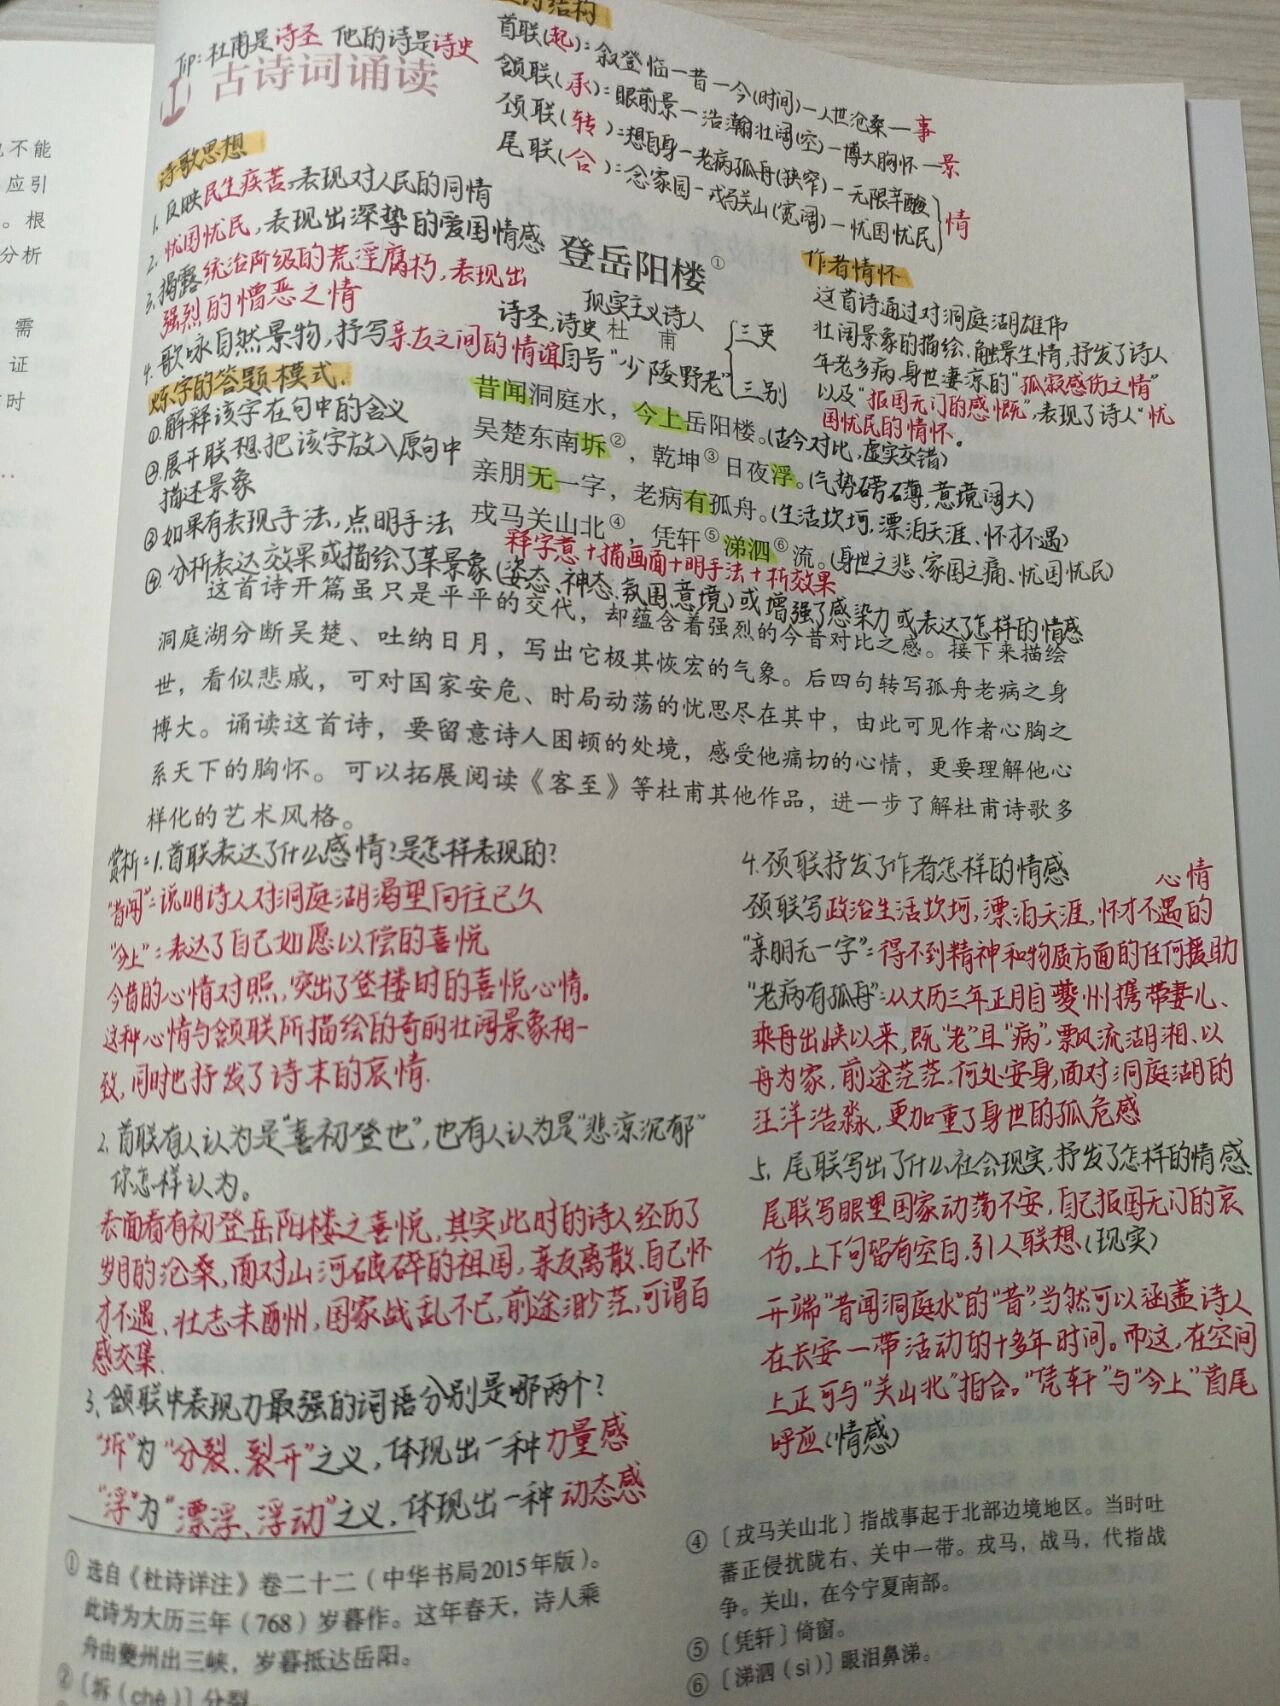 也不能
应引
。根
分析
需
证
时
Tip：杜甫是诗圣 他的诗是诗史
古诗词诵读
结构
首联(起)：叙登临—昔—今(时间)—人世沧桑—事
颔联(承)：眼前景—浩瀚壮阔(空)—博大胸怀—景
颈联(转)：想自身—老病孤舟(狭窄)—无限辛酸
尾联(合)：念家园—戎马关山(宽阔)—忧国忧民
情
诗歌思想
1. 反映民生疾苦,表现对人民的同情
2. 忧国忧民,表现出深挚的爱国情感
3. 揭露统治阶级的荒淫腐朽,表现出
强烈的憎恶之情
4. 歌咏自然景物,抒写亲友之间的情谊
登岳阳楼①
诗圣、诗史 现实主义诗人
杜 甫
自号"少陵野老"
三吏
三别
作者情怀
这首诗通过对洞庭湖雄伟
壮阔景象的描绘,触景生情,抒发了诗人
年老多病,身世凄凉的"孤寂感伤之情"
以及"报国无门的感慨",表现了诗人"忧
国忧民的情怀。
炼字的答题模式.
①.解释该字在句中的含义
②.展开联想.把该字放入原句中
描述景象
③如果有表现手法,点明手法
④.分析表达效果或描绘了某景象(姿态、神态、氛围、意境)或增强了感染力或表达了怎样的情感
昔闻洞庭水，今上岳阳楼。(古今对比,虚实交错)
吴楚东南坼②，乾坤③日夜浮。(气势磅礴,意境阔大)
亲朋无一字，老病有孤舟。(生活坎坷,漂泊天涯、怀才不遇)
戎马关山北④，凭轩⑤涕泗⑥流。(身世之悲、家国之痛、忧国忧民)
释字意+描画面+明手法+析效果
这首诗开篇虽只是平平的交代，却蕴含着强烈的今昔对比之感。接下来描绘
洞庭湖分断吴楚、吐纳日月，写出它极其恢宏的气象。后四句转写孤舟老病之身
世，看似悲戚，可对国家安危、时局动荡的忧思尽在其中，由此可见作者心胸之
博大。诵读这首诗，要留意诗人困顿的处境，感受他痛切的心情，更要理解他心
系天下的胸怀。可以拓展阅读《客至》等杜甫其他作品，进一步了解杜甫诗歌多
样化的艺术风格。
赏析：1.首联表达了什么感情?是怎样表现的?
"昔闻"：说明诗人对洞庭湖渴望向往已久
"今上"：表达了自己如愿以偿的喜悦
今昔的心情对照,突出了登楼时的喜悦心情.
这种心情与颔联所描绘的奇丽壮阔景象相一
致,同时也抒发了诗末的哀情.
2.首联有人认为是"喜初登也",也有人认为是"悲凉沉郁"
你怎样认为。
表面看有初登岳阳楼之喜悦,其实此时的诗人经历了
岁月的沧桑,面对山河破碎的祖国,亲友离散、自己怀
才不遇、壮志未酬州,国家战乱不已,前途渺茫,可谓百
感交集.
3、颔联中表现力最强的词语分别是哪两个?
"坼"为"分裂、裂开"之义,体现出一种力量感
"浮"为"漂浮、浮动"之义,体现出一种动态感
4.颈联抒发了作者怎样的情感
颈联写政治生活坎坷,漂泊天涯,怀才不遇的心情
"亲朋无一字"：得不到精神和物质方面的任何援助
"老病有孤舟"：从大历三年正月自夔州携带妻儿、
乘舟出峡以来,既"老"且"病",飘流湖湘、以
舟为家,前途茫茫,何处安身,面对洞庭湖的
汪洋浩淼,更加重了身世的孤危感
5.尾联写出了什么社会现实,抒发了怎样的情感.
尾联写眼望国家动荡不安,自己报国无门的哀
伤.上下句留有空白,引人联想(现实)
开端"昔闻洞庭水"的"昔",当然可以涵盖诗人
在长安一带活动的十多年时间。而这,在空间
上正可与"关山北"拍合。"凭轩"与"今上"首尾
呼应(情感)
① 选自《杜诗详注》卷二十二（中华书局2015年版）。
此诗为大历三年（768）岁暮作。这年春天，诗人乘
舟由夔州出三峡，岁暮抵达岳阳。
②〔坼（chè）〕分裂。
④〔戎马关山北〕指战事起于北部边境地区。当时吐
蕃正侵扰陇右、关中一带。戎马，战马，代指战
争。关山，在今宁夏南部。
⑤〔凭轩〕倚窗。
⑥〔涕泗（sì）〕眼泪鼻涕。